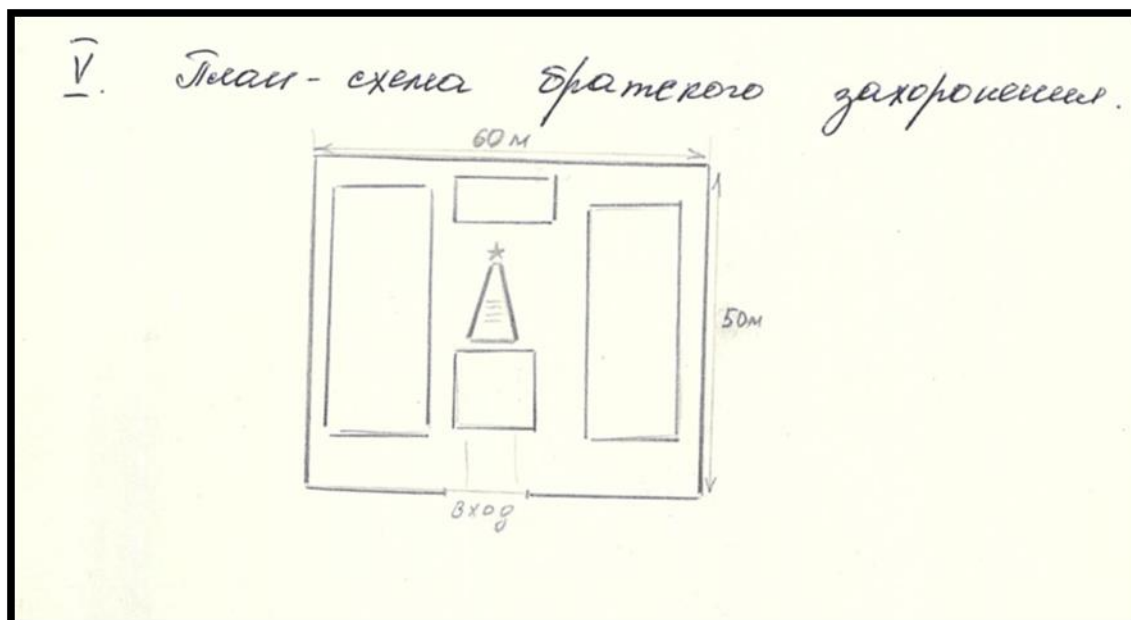 V. План-схема братского захоронения.
60м
50м
вход